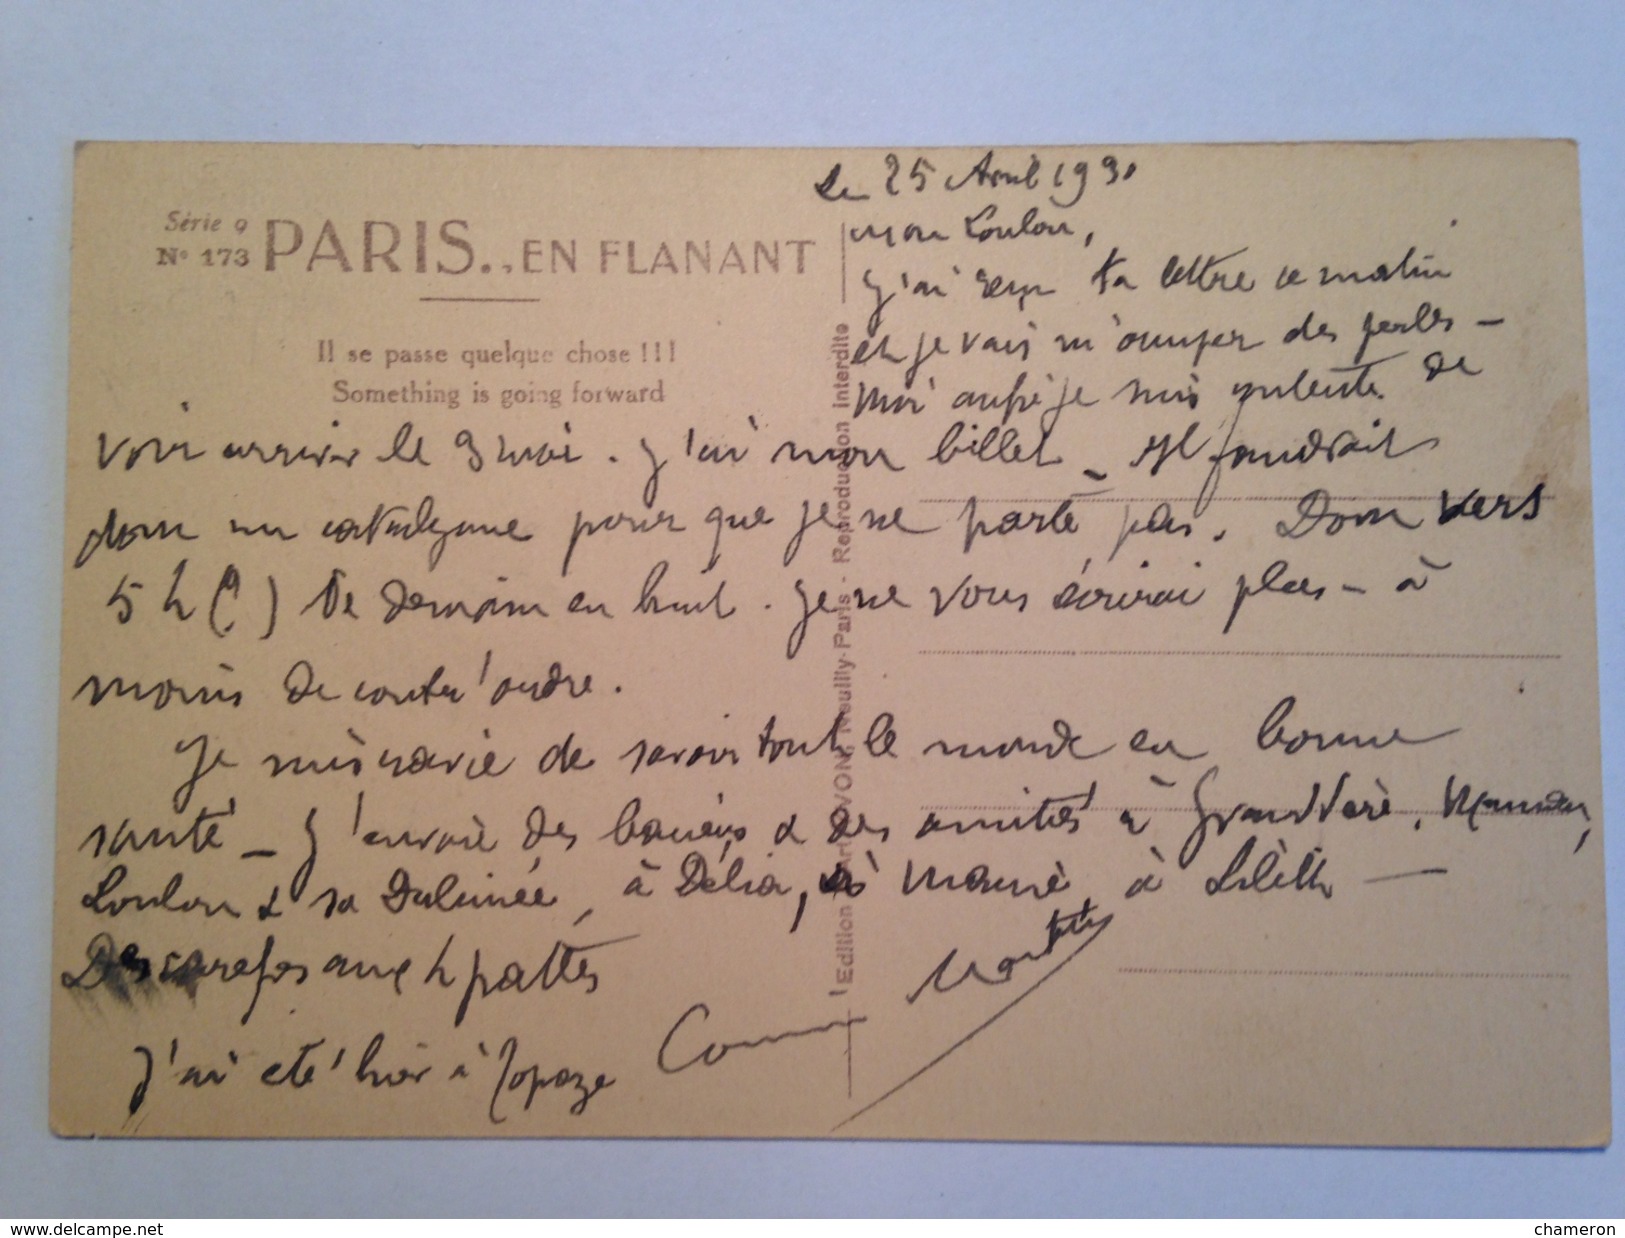 Le 25 Avril 1930
Série 9
N° 173 PARIS... EN FLANANT
Mon Loulou,
J'ai reçu ta lettre ce matin
et je vais m'occuper des perles -
Il se passe quelque chose !!!
Something is going forward
Moi aussi je suis contente de
voir arriver le 3 mai. J'ai mon billet - Il faudrait
donc un cataclysme pour que je ne parte pas. Donc vers
5 h (?) de demain en huit. Je ne vous écrirai plus - à
moins de contr'ordre.
Je suis ravie de savoir tout le monde en bonne
santé - J'envoie des baisers & des amitiés à Grand Père, Maman,
Loulou & sa Dulcinée, à Délia, à Maurice, à Lilith -
Des caresses aux 4 pattes
J'ai été hier à Topaze
Edition d'Art YVON, Neuilly-Paris - Reproduction interdite
www.delcampe.net
chameron